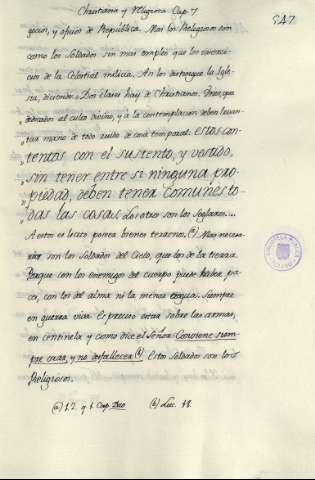 Christiana y Religiosa Cap. 7
547
gocios, y oficios de Republica. Mas los Religiosos son
como los Soldados sin mas empleo que los exerci-
cios de la Celestial milicia. Asi los distingue la Igle-
sia, diciendo: Dos clases hay de Christianos. Unos, que
dedicados al culto divino, y à la contemplacion deben levan-
tar mano de todo ruido de cosa temporal: estos con-
tentos con el sustento, y vestido,
sin tener entre si ninguna pro-
piedad, deben tener comunes to-
das las cosas. Los otros son los Seglares....
A estos es licito poseer bienes terrenos. (a) Mas neces-
arios son los Soldados del Cielo, que los de la tierra.
Porque con los enemigos del cuerpo puede haber pa-
ces, con los del alma ni la menor tregua. Siempre
en guerra viva. Es preciso estar sobre las armas,
en centinela y como dice el Señor Conviene siem-
pre orar, y no desfallecer. (b) Estos Soldados son los
Religiosos.
(a) 12. q. 1. Cap. Duo (b) Luc. 18.